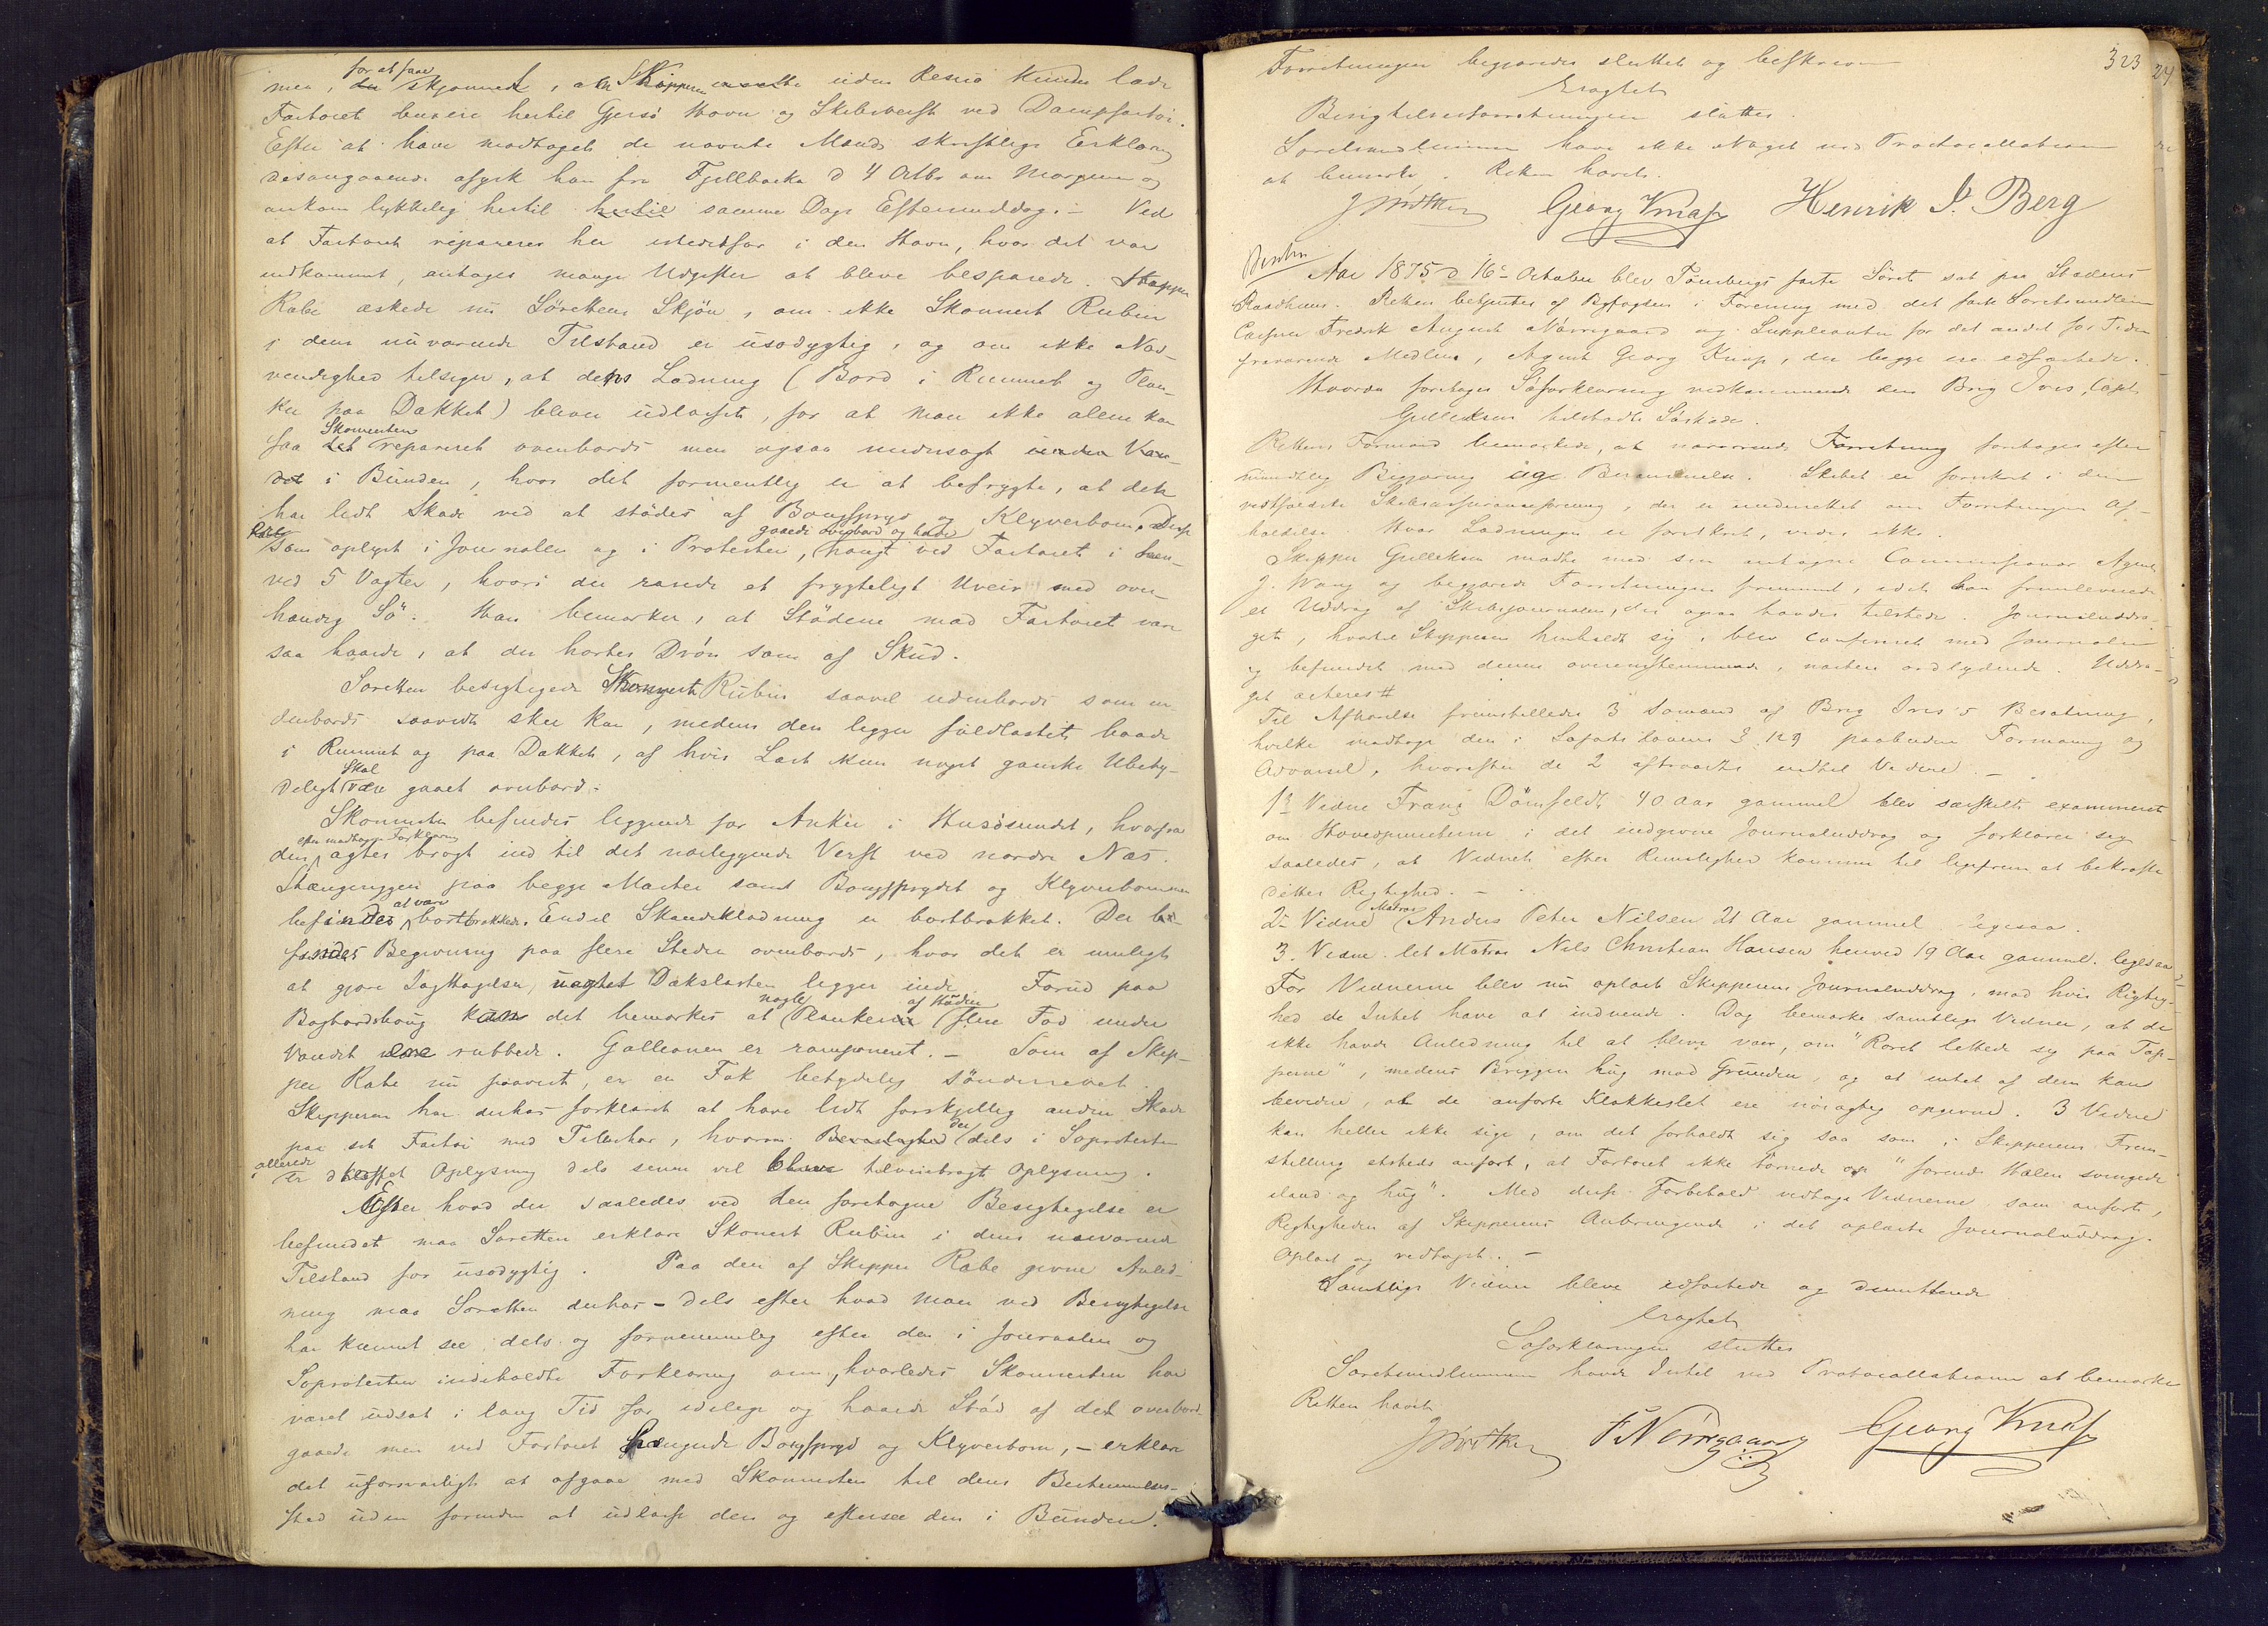 for at faae
men, skjønnet, at Skipperen uden Resico kunde lade
Fartøiet buxere hertil Gjersø Havn og Skibsverft ved Dampfartøi.
Efter at have modtaget de nævnte Mænds skriftlige Erklæring
desangaaende afgik han fra Fjellbacka d 4 Octbr om Morgenen og
ankom lykkelig hertil hertil samme Dags Eftermiddag. – Ved
at Fartøiet repareres her istedetfor i den Havn, hvor det var
indkommet, antages mange Udgifter at bleve besparede. Skipper
Rabe æskede nu Sørettens Skjøn, om ikke Skonnert Rubin
i dens nuværende Tilstand er usødygtig, og om ikke Nød-
vendighed tilsiger, at dens Ladning (Bord i Rummet og Plan-
ker paa Dækket) bliver udlosset, for at man ikke alene kan
Skonnerten
faa det repareret ovenbords men ogsaa undersøgt under Van-
det i Bunden, hvor det formentlig er at befrygte, at den
har lidt Skade ved at stødes af Bougspryd og Klyverbom. Disse
gaaede overbord og havde
som oplyst i Journalen og i Protesten, hængt ved Fartøiet i hen-
ved 5 Vagter, hvori der rasede et frygteligt Uveir med over-
hændig Sø. Han bemærker, at Stødene mod Fartøiet vare
saa haarde, at der hørtes Drøn som af Skud.
Søretten besigtigede Skonnert Rubin saavel udenbords som in-
denbords saavidt skee kan, medens den ligger fuldlastet baade
i Rummet og paa Dækket, af hvis Last kun noget ganske Ubety-
Skal
deligt være gaaet overbord. –
Skonnerten befindes liggende for Anker i Husøsundet, hvorfra
efter modtagen Forklaring
den agtes bragt ind til det nærliggende Verft ved nordre Næs.
Stængerejgen paa begge Master samt Bougsprydet og Klyverbommen
at være
befindes bortbrækkede. Endel Skandsklædning er bortbrækket. Der be-
findes Begivning paa flere Steder ovenbords, hvor det er muligt
at gjøre Iagttagelser, uagtet Dækslasten ligger inde. Forud paa
nogle af Huden
Bagbordsboug kan det bemærkes at Plankerne flere Fod under
Vandet ere rubbede. Gallionen er ramponeret. – Som af Skip-
per Rabe nu paavist, er en Fok betydelig sønderrevet.
Skipperen har derhos forklaret at have lidt forskjellig anden Skade
der
paa sit Fartøi med Tilbehør, hvorom dels i Søprotesten
allerede
er skaffet Oplysning dels senere vil blive tilveiebragt Oplysning.
Efter hvad der saaledes ved den foretagne Besigtigelse er
befundet maa Søretten erklære Skonnert Rubin i dens nuværende
Tilstand for usødygtig. Paa den af Skipper Rabe givne Anled-
ning maa Søretten derhos – dels efter hvad man ved Besigtigelse
har kunnet see dels og fornemmelig efter den i Journalen og
Søprotesten indeholdte Forklaring om, hvorledes Skonnerten har
været udsat i lang Tid for idelige og haarde Stød af det overbord-
gaaede men ved Fartøiet hængende Bougspryd og Klyverbom, – erklære
det uforsvarligt at afgaae med Skonnerten til dens Bestemmelses-
sted uden forinden at udlosse den og efterse den i Bunden.
323
24
Forretningen begjæredes sluttet og beskreven
Eragtet
Besigtelsesforretningen sluttes.
Søretsmedlemmerne have ikke Noget ved Protocollationen
at bemærke. Retten hævet.
Georg Knap Henrik J. Berg
Aar 1875 d. 16de October blev Tønsbergs faste Søret sat paa Stadens
Raadhuus. Retten betjentes af Byfogden i Forening med det faste Søretsmedlem
Capten Fredrik August Nørregaard og Suppleanten for det andet for Tiden
fraværende Medlem, Agent Georg Knap, der begge ere edfæstede.
Hvorda foretoges Søforklaring vedkommende den Brig Iris, Capt.
Gulleksen tilstødte Søskade.
Rettens Formand bemærkede, at nærværende Forretning foretages efter
mundtlig Begjæring uge Berammelse. Skibet er forsikret i den
vestfoldske Skibsassuranceforening, der er underrettet om Forretningens Af-
holdelse. Hvor Ladningen er forsikret, vides ikke.
Skipper Gulleksen mødte med sin antagne Commissionær Agent
J. Wang og begjærede Forretningen fremmet, idet han fremleverede
et Uddrag af Skibsjournalen, der ogsaa havdes tilstede. Journaluddra-
get, hvortil Skipperen henholdt sig, blev confereret med Journalen
og befundet med denne overensstemmende, næsten ordlydende. Uddra-
get acteres #
Til Afhørelse fremstilledes 3 Sømænd af Brig Iris's Besætning,
hvilke modtoge den i Søfartslovens § 129 paabudne Formaning og
Advarsel, hvorefter de 2 aftraadte indtil Videre. –
1ste Vidne Franz Dömfeldt 40 Aar gammel blev særskilt examineret
om Hovedpuncterne i det indgivne Journaluddrag og forklarer sig
saaledes, at Vidnet efter Rimelighed kommer til ligefrem at bekræfte
dettes Rigtighed. –
Matros
2det Vidne Anders Peter Nilsen 21 Aar gammel ligesaa.
3. Vidne let Matros Nils Christian Hansen henved 19 Aar gammel. ligesaa
For Vidnerne blev nu oplæst Skipperens Journaluddrag, mod hvis Rigtig-
hed de Intet have at indvende. Dog bemærke samtlige Vidner, at de
ikke havde Anledning til at blive vaer, om "Roret lettede sig paa Tap-
perne", medens Briggen hug mod Grunden, og at intet af dem kan
bevidne, at de anførte Klokkeslet ere nøiagtig opgivne. 3 Vidne
kan heller ikke sige, om det forholdt sig saa som i Skipperens Frem-
stilling etsteds anført, at Fartøiet ikke tørnede op "førend Hælen svingede
iland og hug". Med disse Forbehold vedtoge Vidnerne, som anført,
Rigtigheden af Skipperens Anbringende i det oplæste Journaluddrag.
Oplæst og vedtaget. –
Samtlige Vidner bleve edfæstede og dimitterede
Eragtet
Søforklaringen sluttes
Søretsmedlemmerne havde Intet ved Protocollationen at bemærke
Retten hævet
F Nørregaard Georg Knap